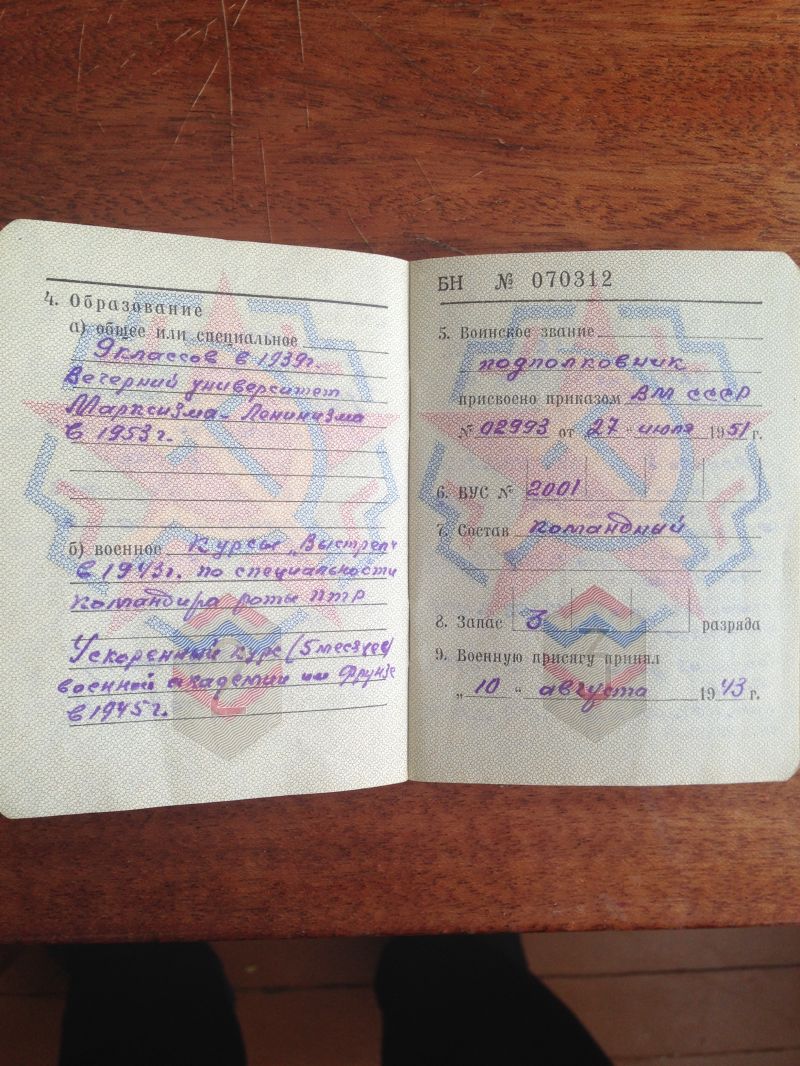 4. Образование
а) общее или специальное
9 классов в 1939г.
Вечерний университет
Марксизма-Ленинизма
в 1953г.
б) военное Курсы „Выстрел"
в 1943г. по специальности
командира роты ПТР
Ускоренный курс (5 месяцев)
военной академии им Фрунзе
в 1945г.
БН № 070312
5. Воинское звание
подполковник
присвоено приказом ВМ СССР
№ 02993 от „27" июля 1951 г.
6. ВУС № 2001
7. Состав командный
8. Запас 3 разряда
9. Военную присягу принял
„10" августа 1943 г.